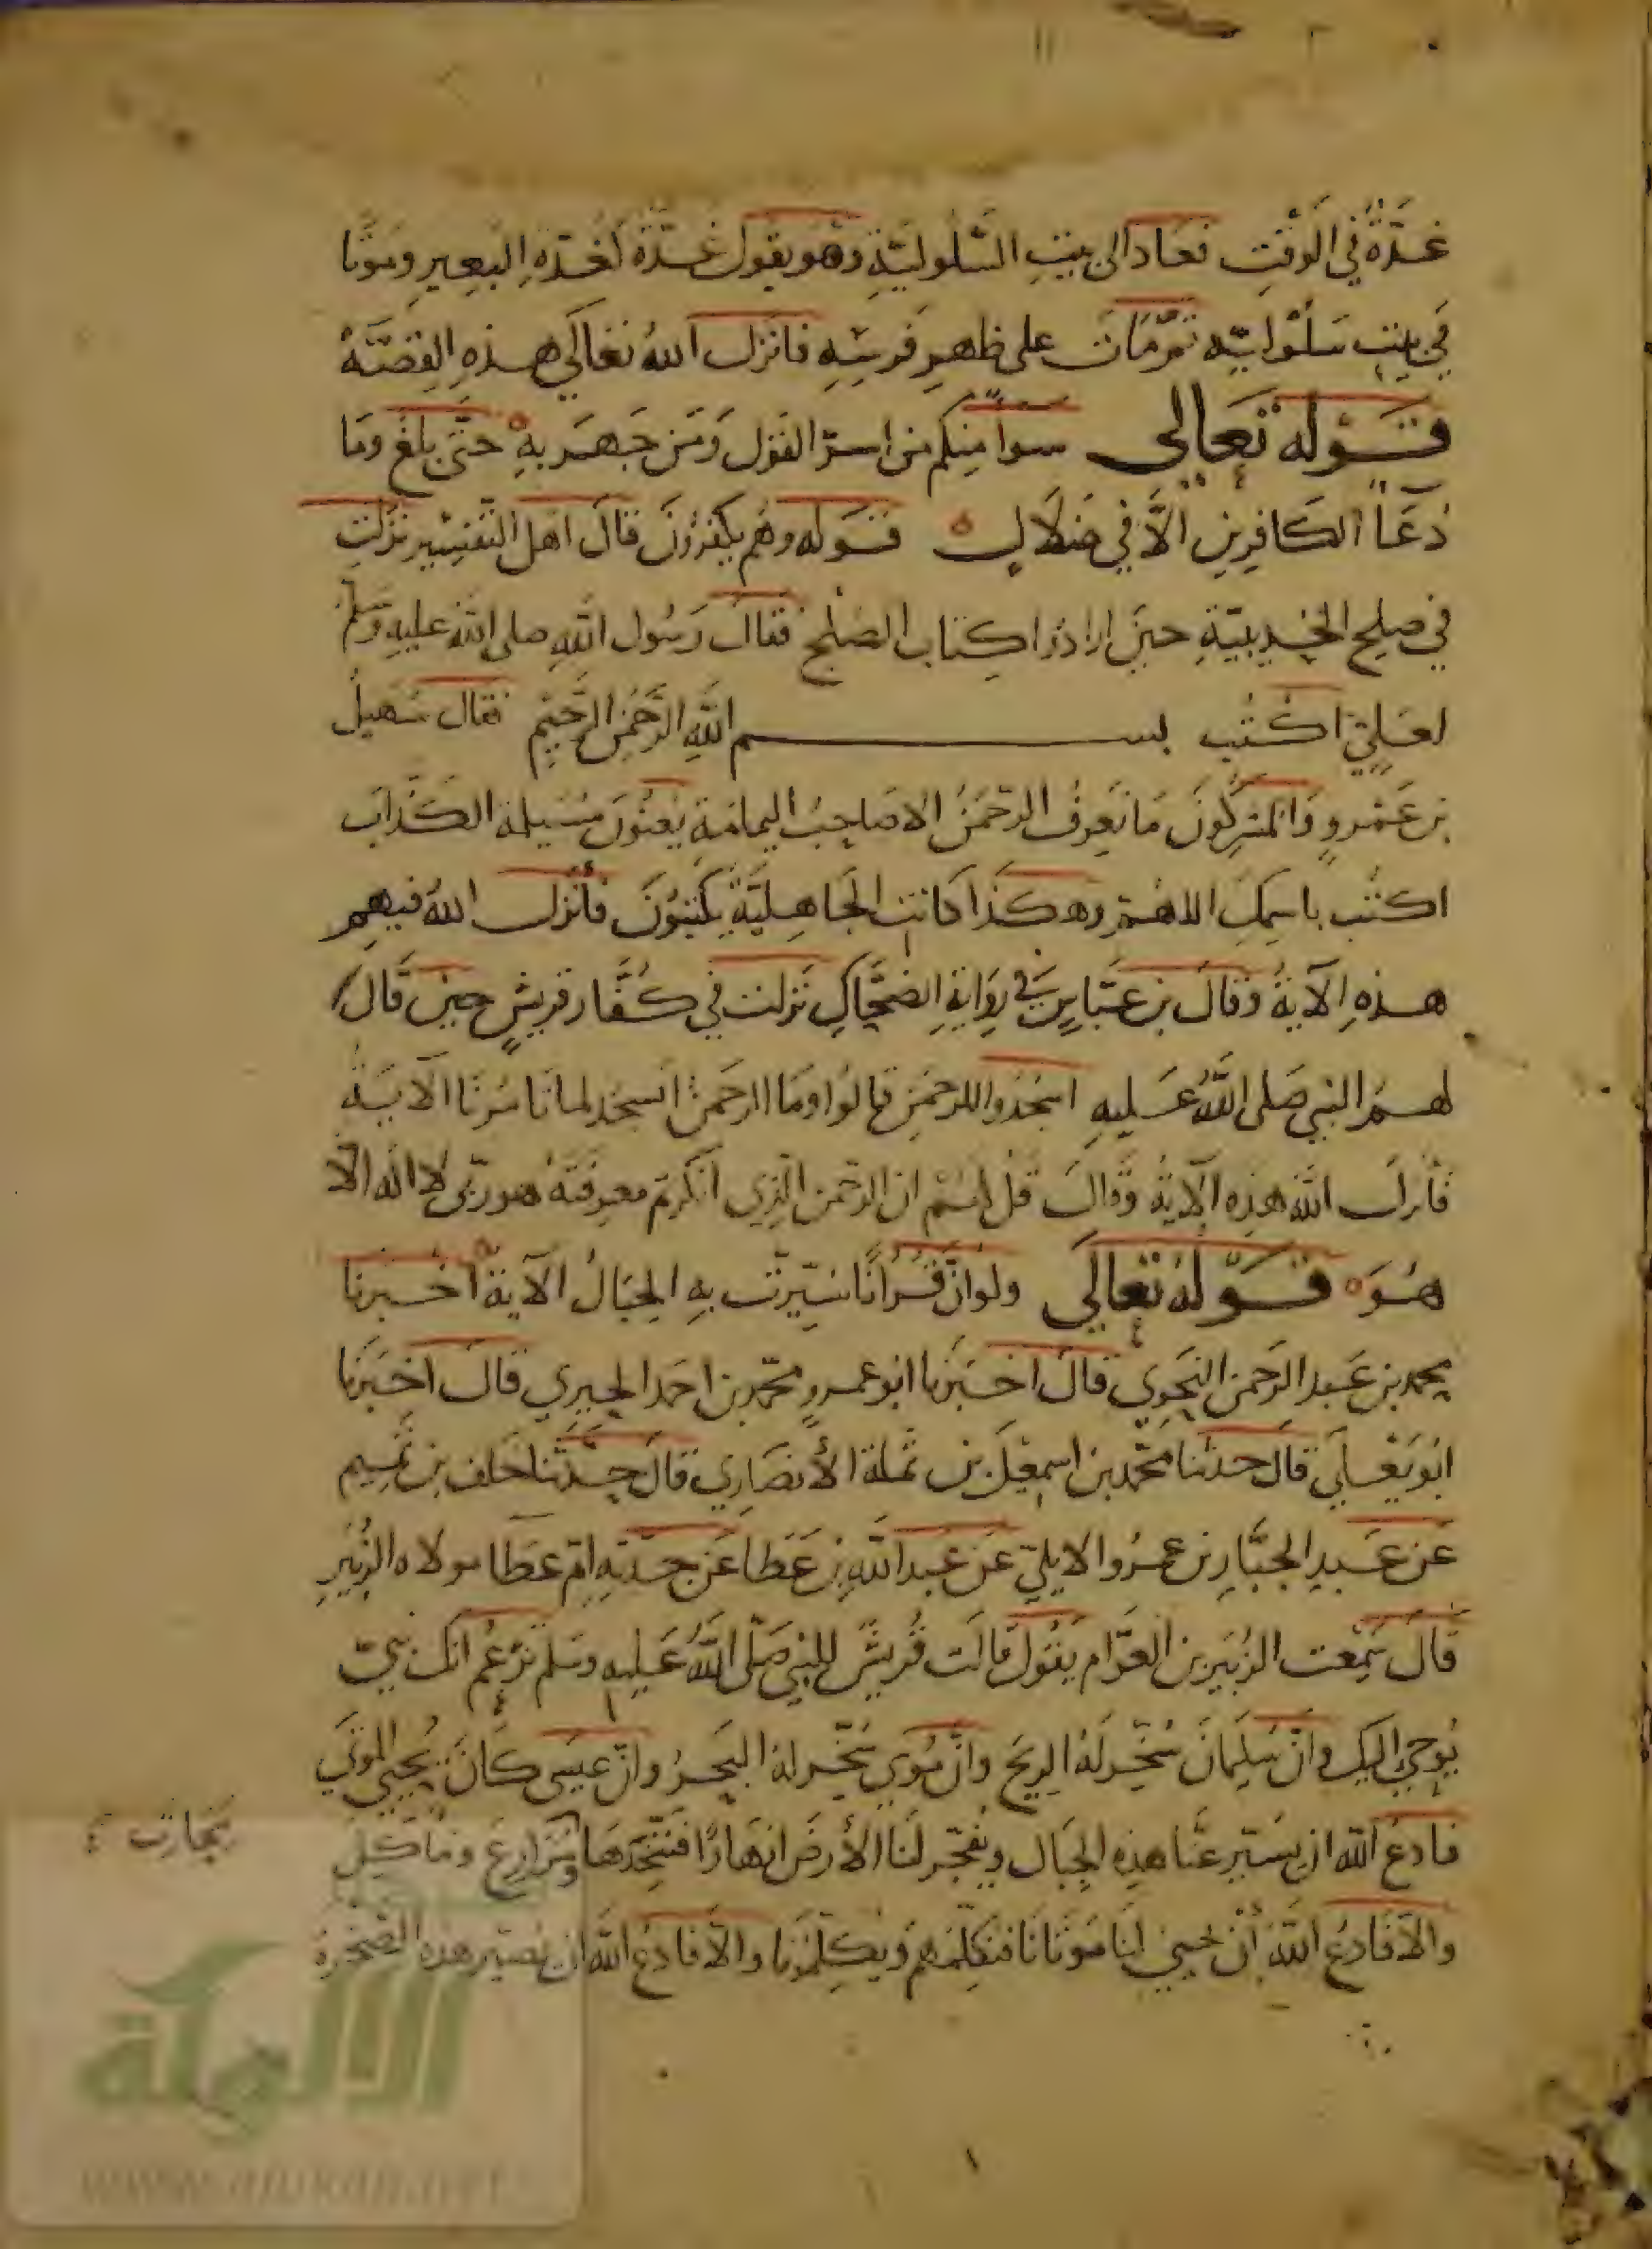 غدّةٌ في الوَقتِ فعَادَ الى بيتِ السَّلُوليّةِ وهو يقول غدّةٌ كغدّةِ البَعِيرِ ومَوتًا
في بيتِ سَلُوليّه ثمّ مَاتَ على ظهرِ فرسِهِ فانزل اللهُ تعَالى هذهِ القِصّةَ
قَوله تعَالى سوآ منكم من اسرّ القول وَمَن جَهَر بهِ حتّى بلغَ ومَا
دُعَآ الكافرين الاّ في ضلالٍ قَوله وهُم يكفرُونَ قالَ اهل التّفسير نزلت
في صلح الحُديبيّةِ حينَ ارادُوا كتاب الصُلْح فقالَ رَسُول اللهِ صلى الله عليهِ وَسَلّم
لعَليّ اكتُب بســـم اللهِ الرَّحمٰنِ الرَّحِيْمِ فقال سُهَيلُ
بن عَمْرو وَالمشركُونَ مَا نَعِرفُ الرّحمٰنَ الا صَاحِبُ اليمامَة يَعنُونَ مُسَيلمة الكذّابَ
اكتُب باسمِكَ اللهمّ وهكَذا كانت الجَاهِليَّة يَكتبُونَ فأنزل اللهُ فيهم
هذهِ الآيةُ وقالَ بن عبّاسٍ في رِوَايةِ الضحّاكِ نَزلت في كُفّار قريشٍ حينَ قَال
لهمُ النبي صَلى اللهُ عَليهِ اسجُدُوا للرحمٰنِ قالوُا ومَا الرحمٰنُ انسجُد لما تَامُرنَا الآيَةُ
فأنزلَ اللهُ هذِه الآيةُ وَقالَ قُل لهُمْ ان الرّحمن الّذي انكَرتم معرِفتَهُ هو ربّي لا اله الاّ
هُوَ قَوله تعَالى ولو انّ قُرانًا سُيّرت بهِ الجبَالُ الآية اخْبَرنا
محمد بن عَبد الرّحمن النحَوِي قالَ اخبَرنا ابُو عمرو محمّد بن احمَد الحِيرِي قالَ اخبَرنَا
ابُو يَعْلَي قالَ حدثنا محمّد بن اسمعِيلَ بن ثملة الأنصَارِي قالَ حدَّثنا خلف بن تمِيم
عَن عَبدِ الجبَّارِ بن عمرُو الايليّ عَن عَبد اللهِ بن عَطا عَن جدّتِهِ امّ عَطَا مولاه الزُبَيرِ
قالَ سَمِعت الزُبير بن العَوّام يَقُولُ قالت قُريشٌ للنبي صَلّى اللهُ عَليهِ وسَلم تَزعُم انّك نبيّ
يُوحي اليك وانّ سُليمَانَ سُخّر لَهُ الريحَ وانّ مُوسَى سُخّر لهُ البَحرُ وانّ عيسَى كانَ يُحيي المَوتَى
فادعُ الله ان يُسيّر عنّا هذِه الجبَال ويُفجّر لنَا الأرضَ انهَارًا فنتّخذهَا مَزارِعَ ومأكِل
والاّ فَادعُ اللهَ أن يُحيي لنَا مَوتَانَا فنكَلّمَهم وَيكلمُونا والاّ فادعُ اللهَ ان يُصيّر هذه الصخرة
الألوكة
www.alukah.net